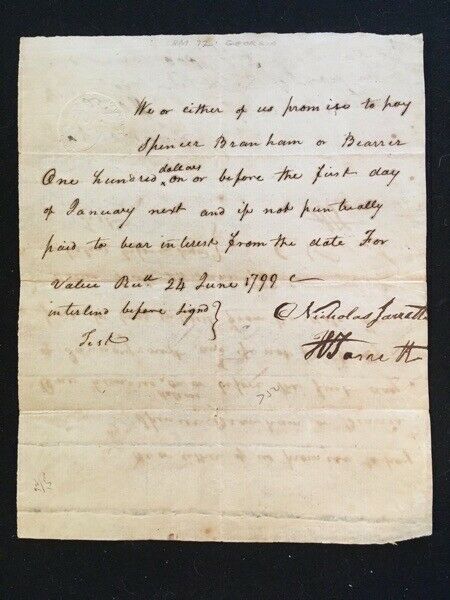 GEORGIA
We or either of us promise to pay
Spencer Branham or Bearer
One hundred dollars on or before the first day
of January next and if not puntually
paid to bear interest from the date For
Value Recd 24 June 1799
interlind before signd
Test
Nicholas Jarratt
Jarratt